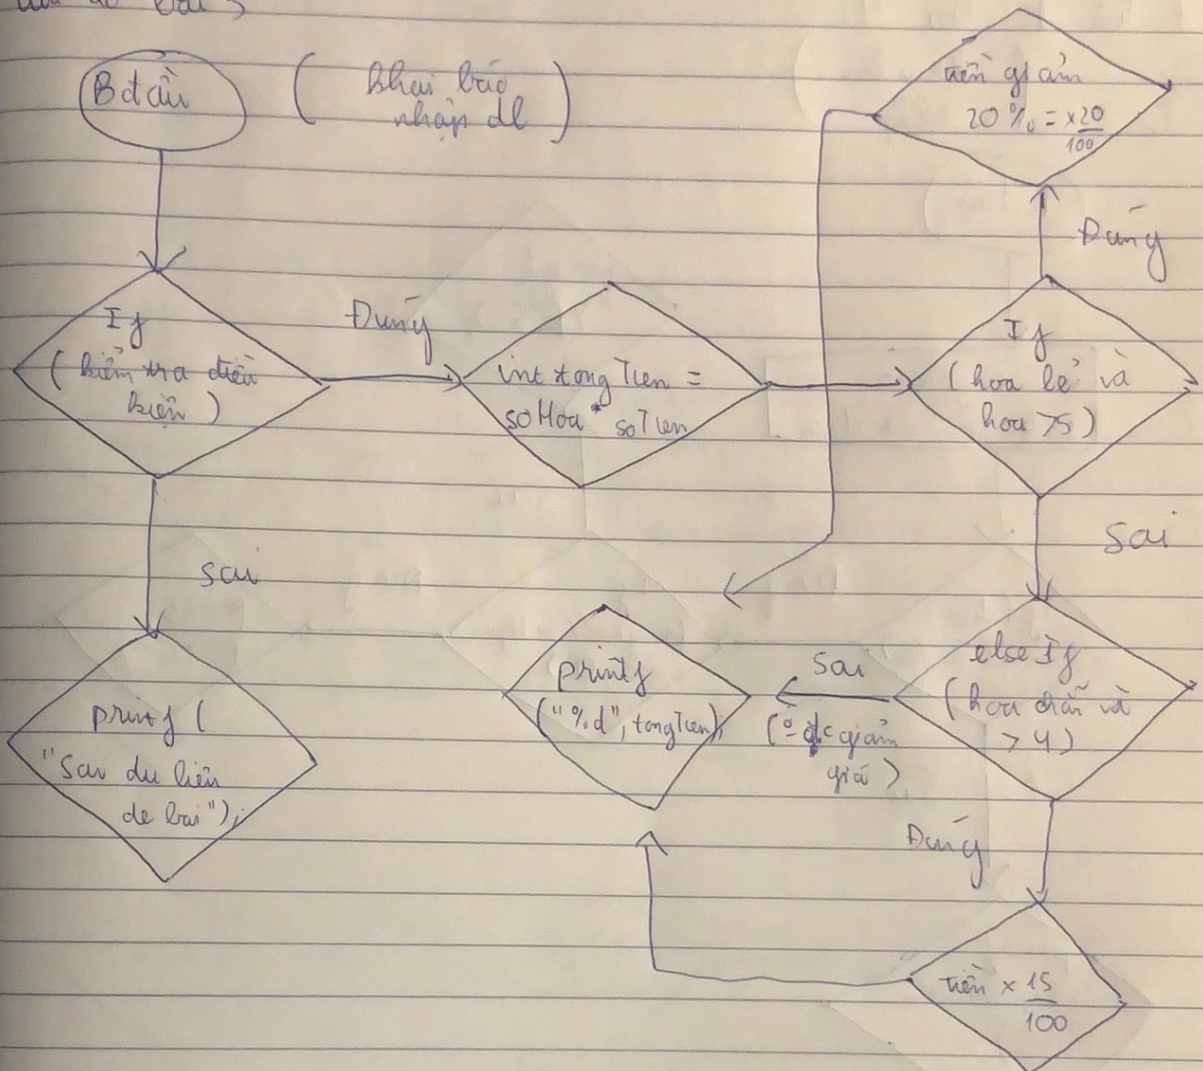 Bđầu
( khai báo
nhập dl )
tiền giảm
20% = ×20
100
Đúng
If
( kiểm tra điều
kiện )
Đúng
int tongTien =
soHoa * soTien
If
( hoa lẻ và
hoa >5 )
sai
Sai
printf (
"Sai du lieu
de bai");
printf
("%d", tongTien);
Sai
đc giảm
giá )
else If
( hoa chẵn và
> 4 )
Đúng
tiền × 15
100